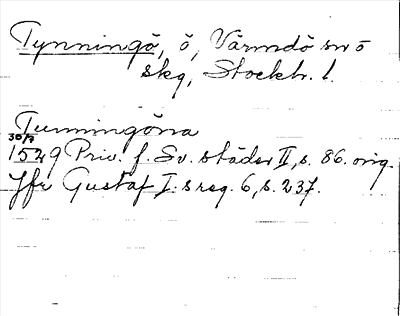 Tynningö, ö, Värmdö sn ö
skg, Stockh. l.
Tunningöna
30/7
1529 Priv. f. Sv. städer II, s. 86. orig.
Jfr Gustaf I:s reg. 6, s. 237.